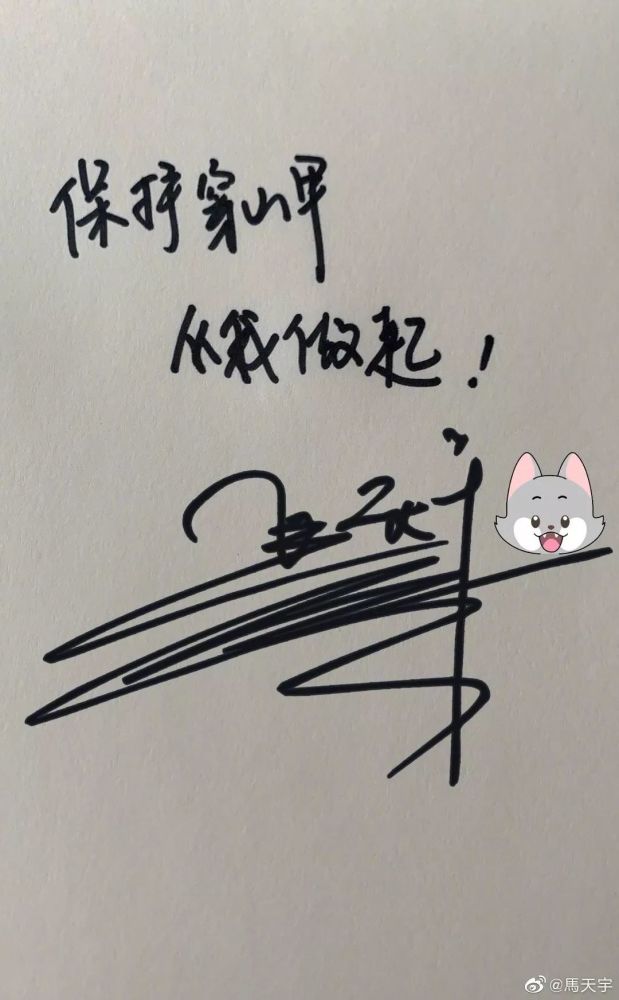 保护穿山甲
从我做起！
@馬天宇